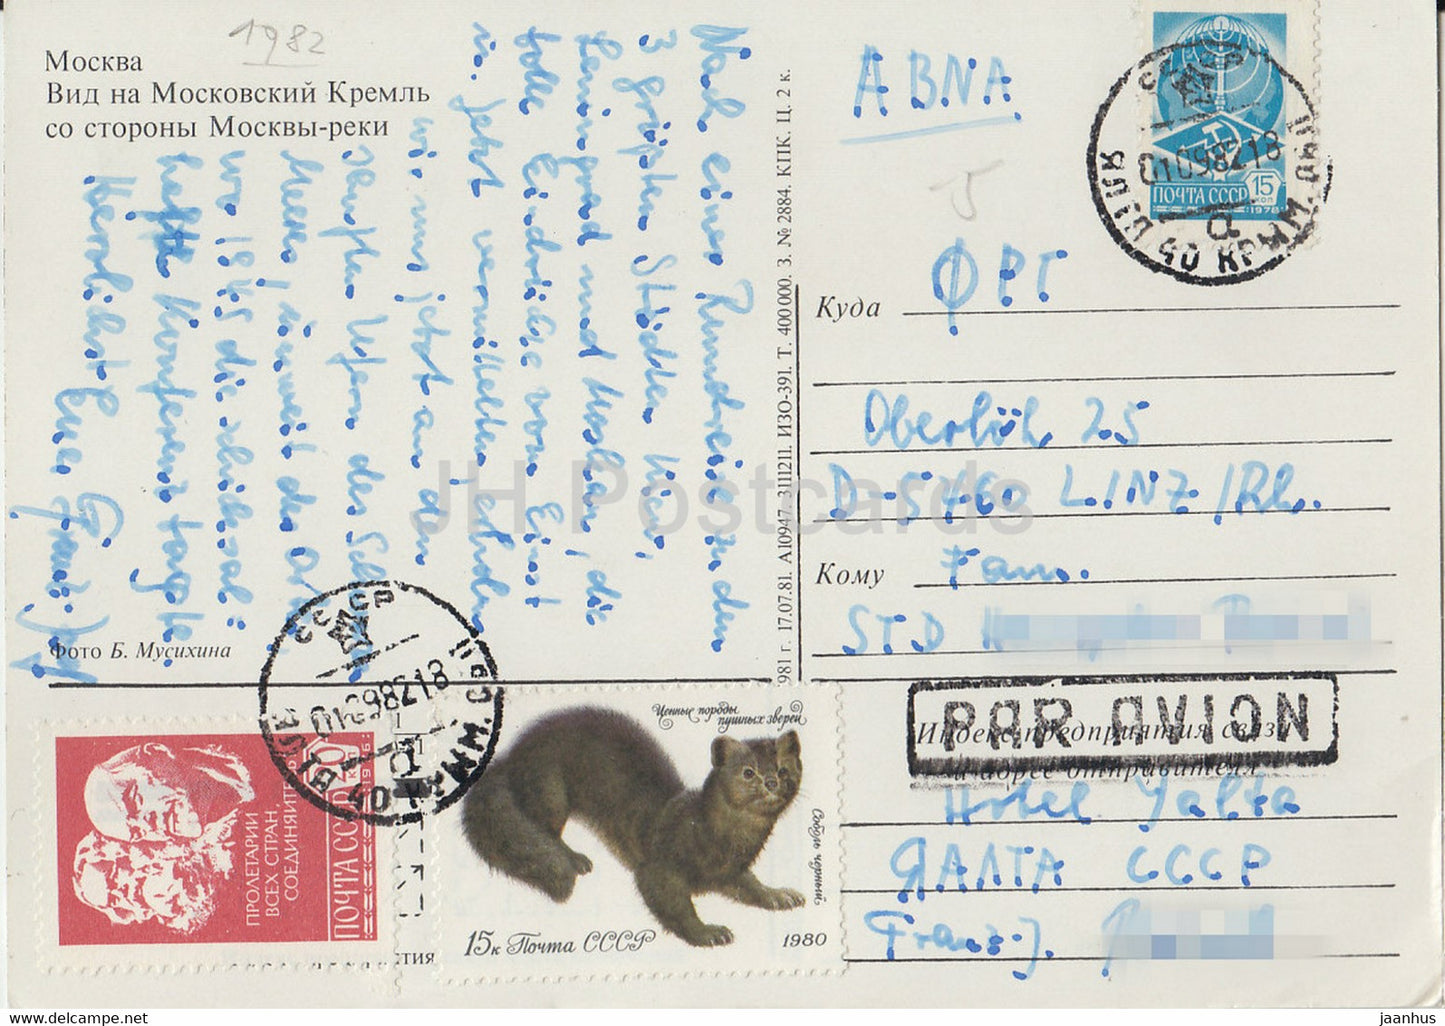 1982
Москва
Вид на Московский Кремль
со стороны Москвы-реки
Nach einer Rundreise zu den
3 größten Städten Kiew,
Leningrad und Moskau, die
tolle Eindrücke von Einst
u. jetzt vermittelten, erholen
wir uns jetzt an den
sanften Ufern des Schwarzen
Meeres, unweit des Ortes,
wo 1945 die "schicksal-
hafte" Konferenz tagte.
Herzlichst Euer Franz-Josef
Фото Б. Мусихина
1981 г. 17.07.81. А10947. 3111211. ИЗО-391. Т. 400 000. З. № 2884. КПК. Ц. 2 к.
ABNA
ПОЧТА СССР 15 КОП
1978
СССР
ЯЛТА 40 КРЫМ. ОБЛ
01098218
Куда ФРГ
Oberlöh 25
D-5460 LINZ/Rh.
Кому Fam.
STD
PAR AVION
Индекс предприятия связи
и адрес отправителя
Hotel Yalta
ЯЛТА СССР
Franz-J.
СССР
ЯЛТА 40 КРЫМ. ОБЛ
01098218
ПРОЛЕТАРИИ
ВСЕХ СТРАН,
СОЕДИНЯЙТЕСЬ
ПОЧТА СССР
Ценные породы
пушных зверей
Соболь черный
15к Почта СССР 1980
JH Postcards
hip-hip.com
jaanhus